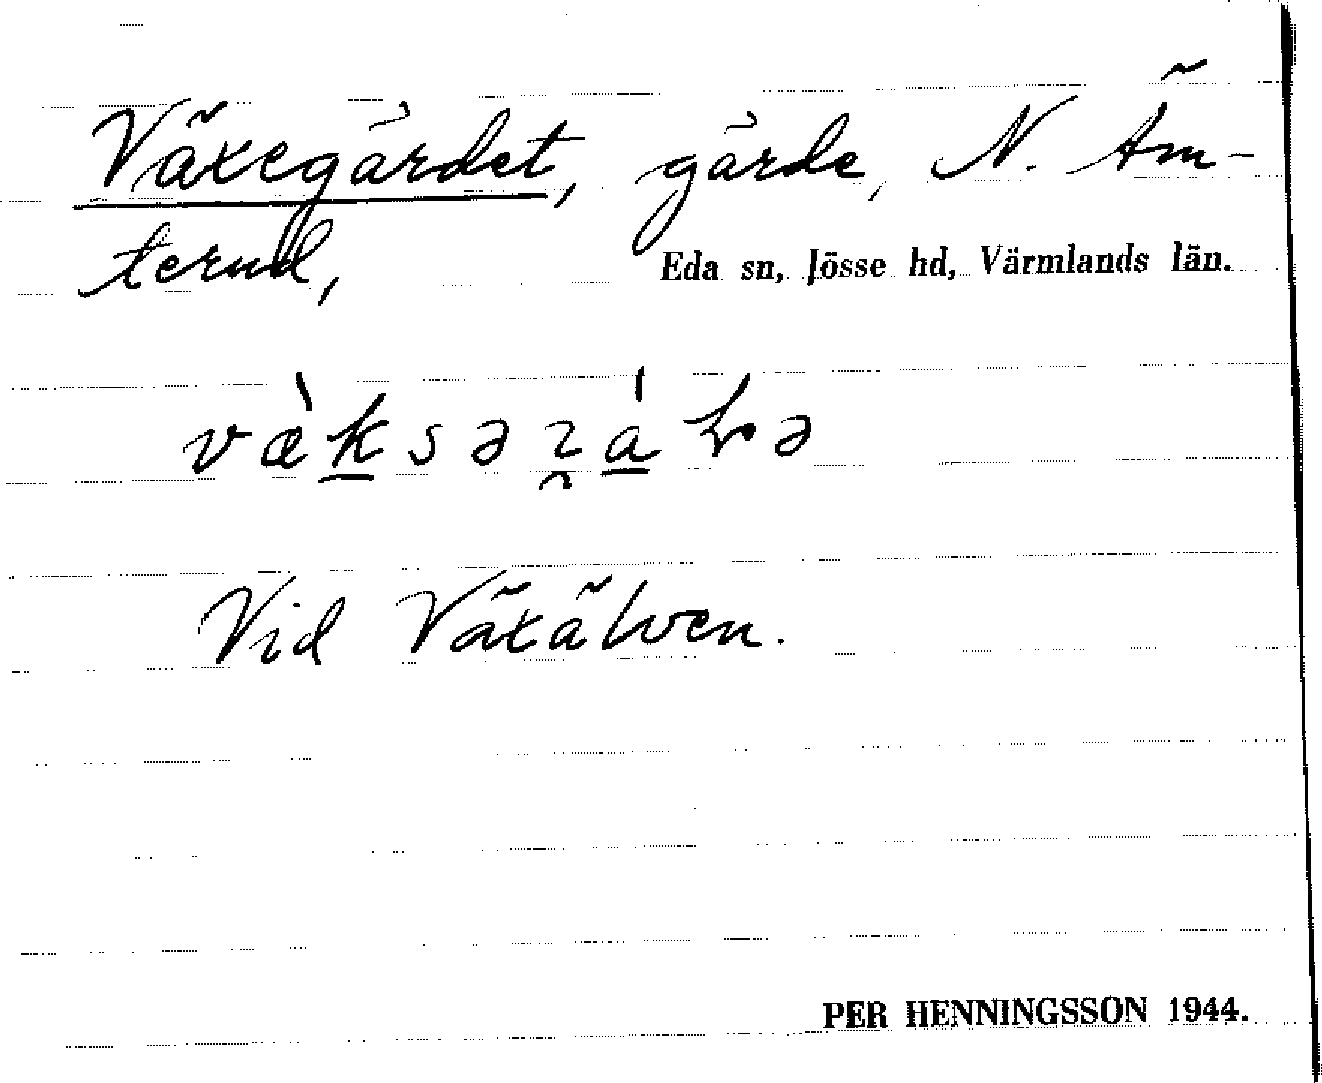 Växegärdet, gärde, N. Äm-
terud,
Eda sn, Jösse hd, Värmlands län.
Vid Växälven.
PER HENNINGSSON 1944.